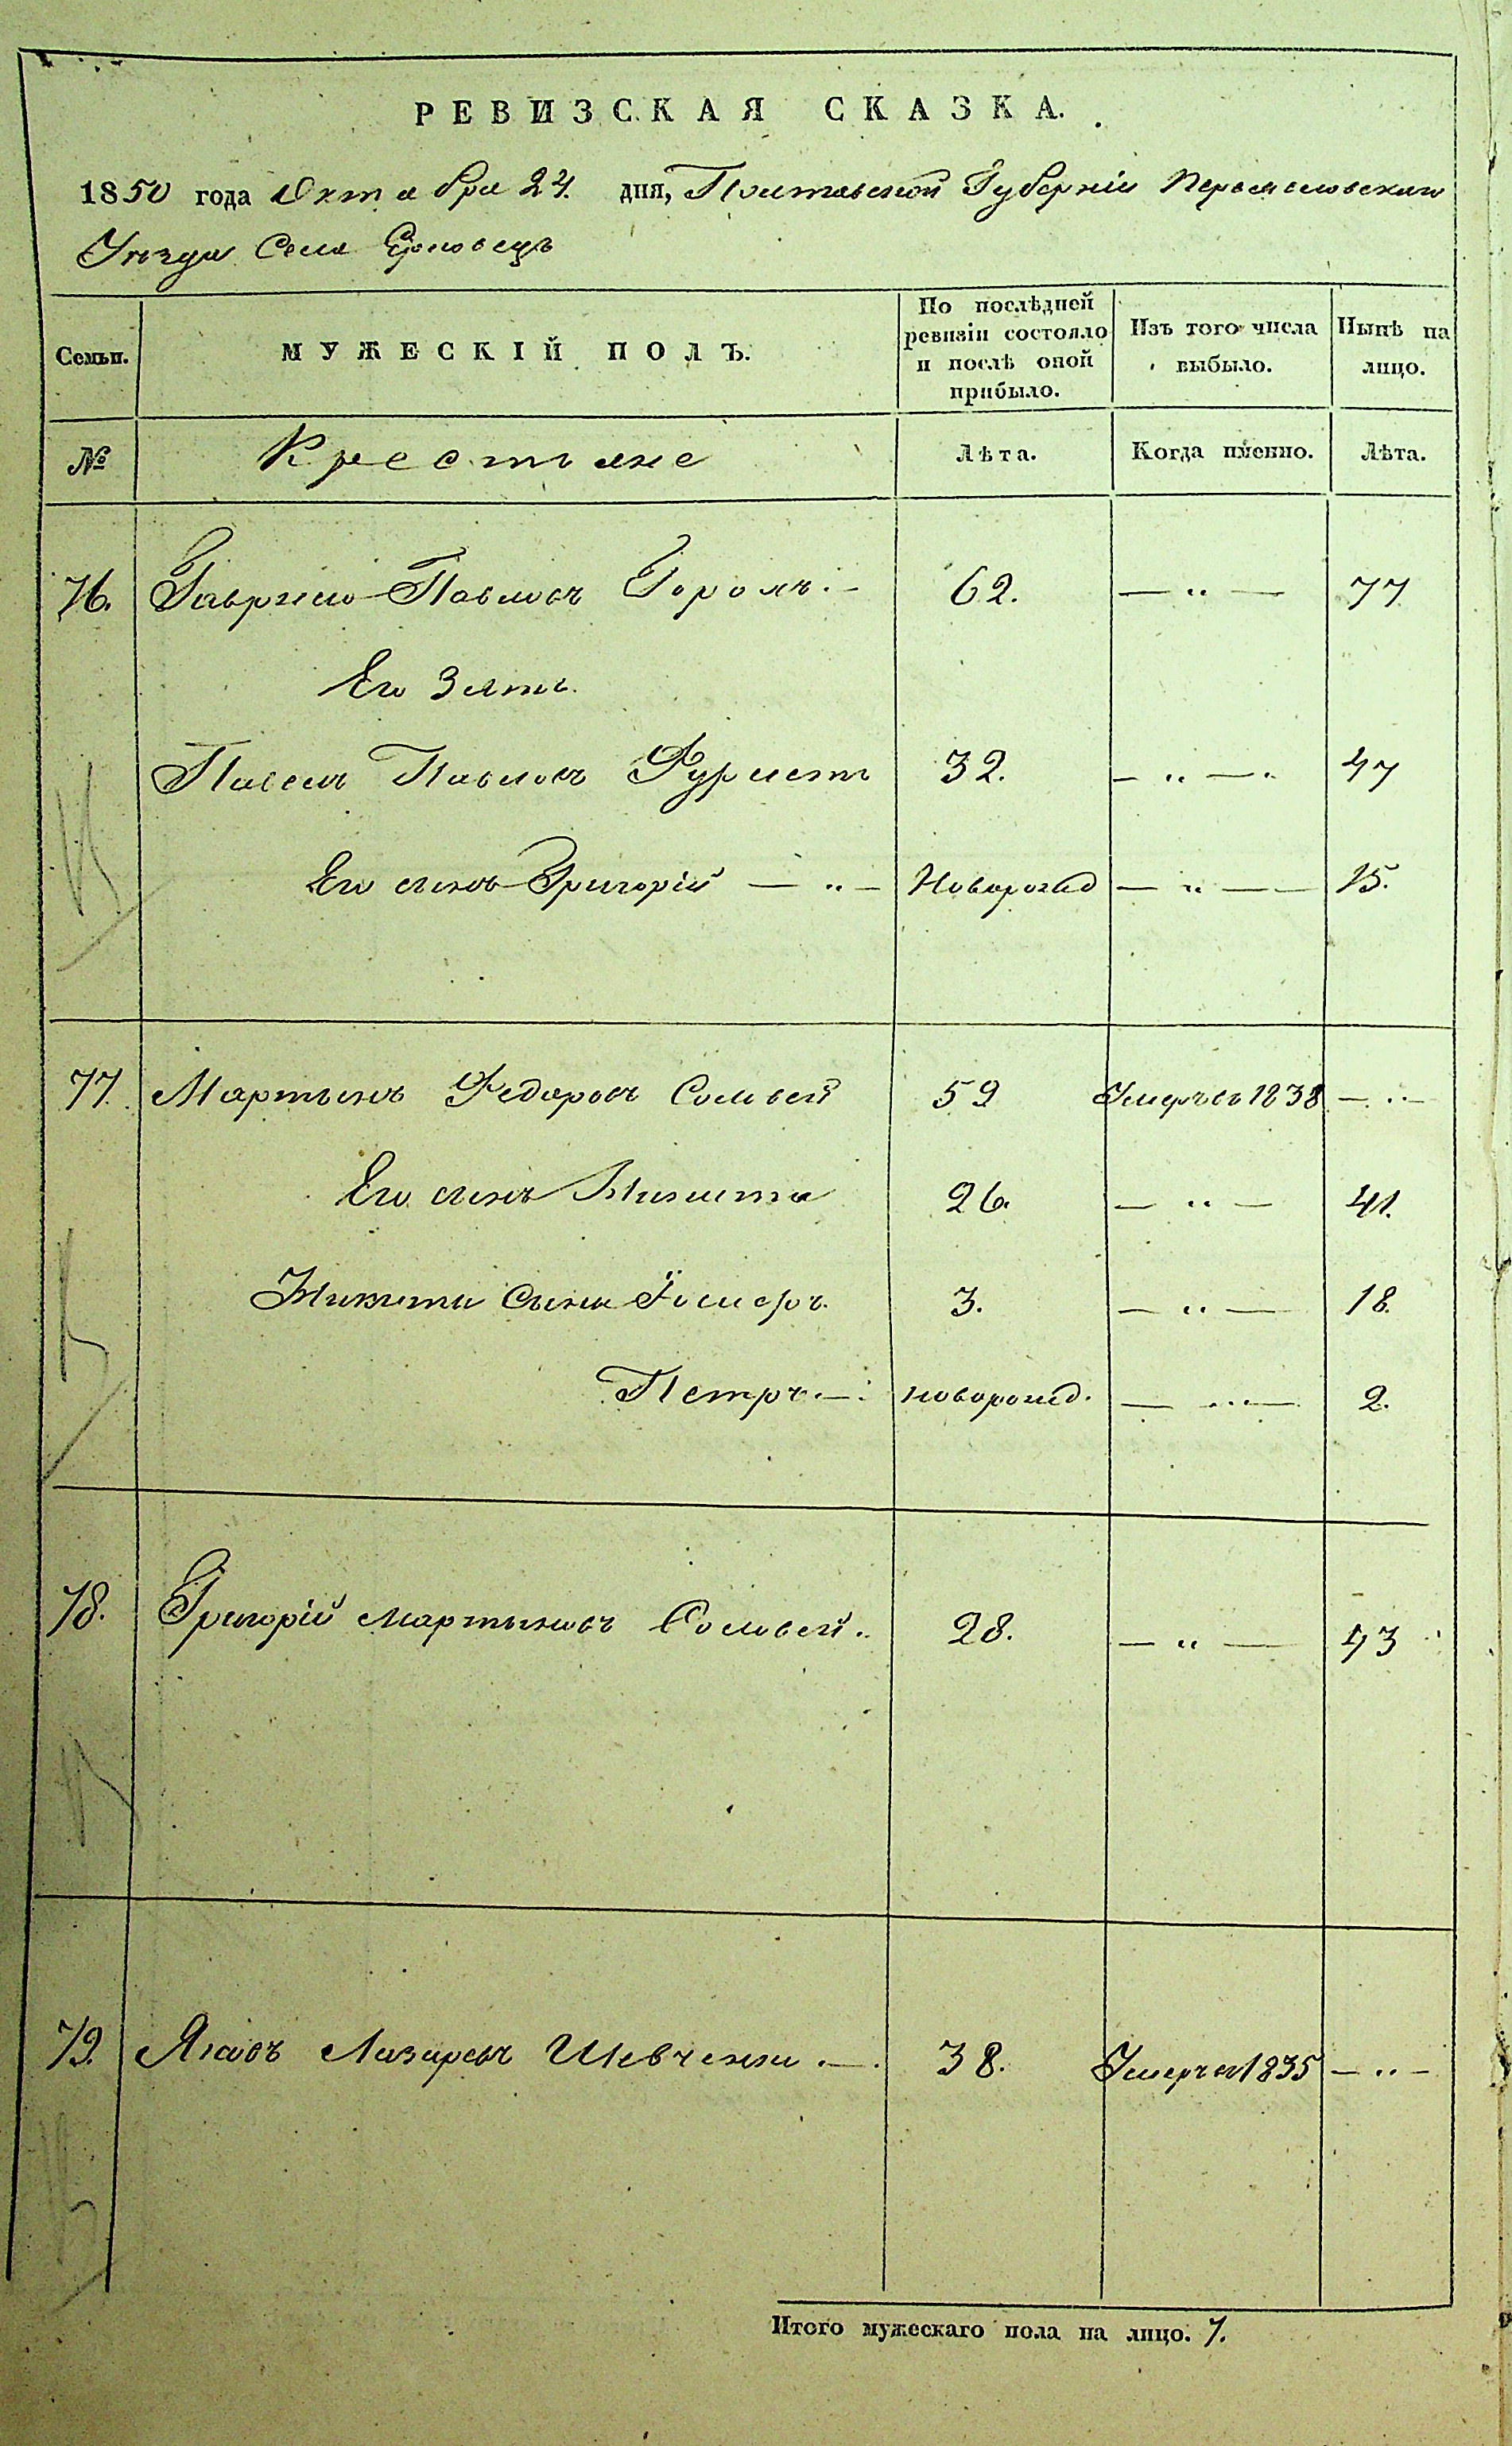 РЕВИЗСКАЯ СКАЗКА.
1850 года Октября 24. дня, Полтавской Губерніи Переяславскаго
Уѣзда Села Ерковецъ
Семьи.
МУЖЕСКІЙ ПОЛЪ.
По послѣдней
ревизіи состояло
и послѣ оной
прибыло.
Изъ того числа
выбыло.
Нынѣ на
лицо.
№ Крестьяне Лѣта. Когда именно. Лѣта.
76. Гаврило Павловъ 62. — „ — 77
Его Зять
Павелъ Павловъ 32. — „ — 47
Его сынъ Григорій — „ — Новорожд — „ — 15.
77. Мартынъ Федоровъ Соловей 59 Умеръ въ 1838 — „ —
Его сынъ Никита 26. — „ — 41.
Никиты Сыны 3. — „ — 18.
Петръ — новорожд. — „ — 2.
78. Григорій Мартыновъ Соловей. 28. — „ — 43
79. Яковъ Лазаревъ Шевченко — 38. Умеръ въ 1835 — „ —
Итого мужескаго пола на лицо. 7.